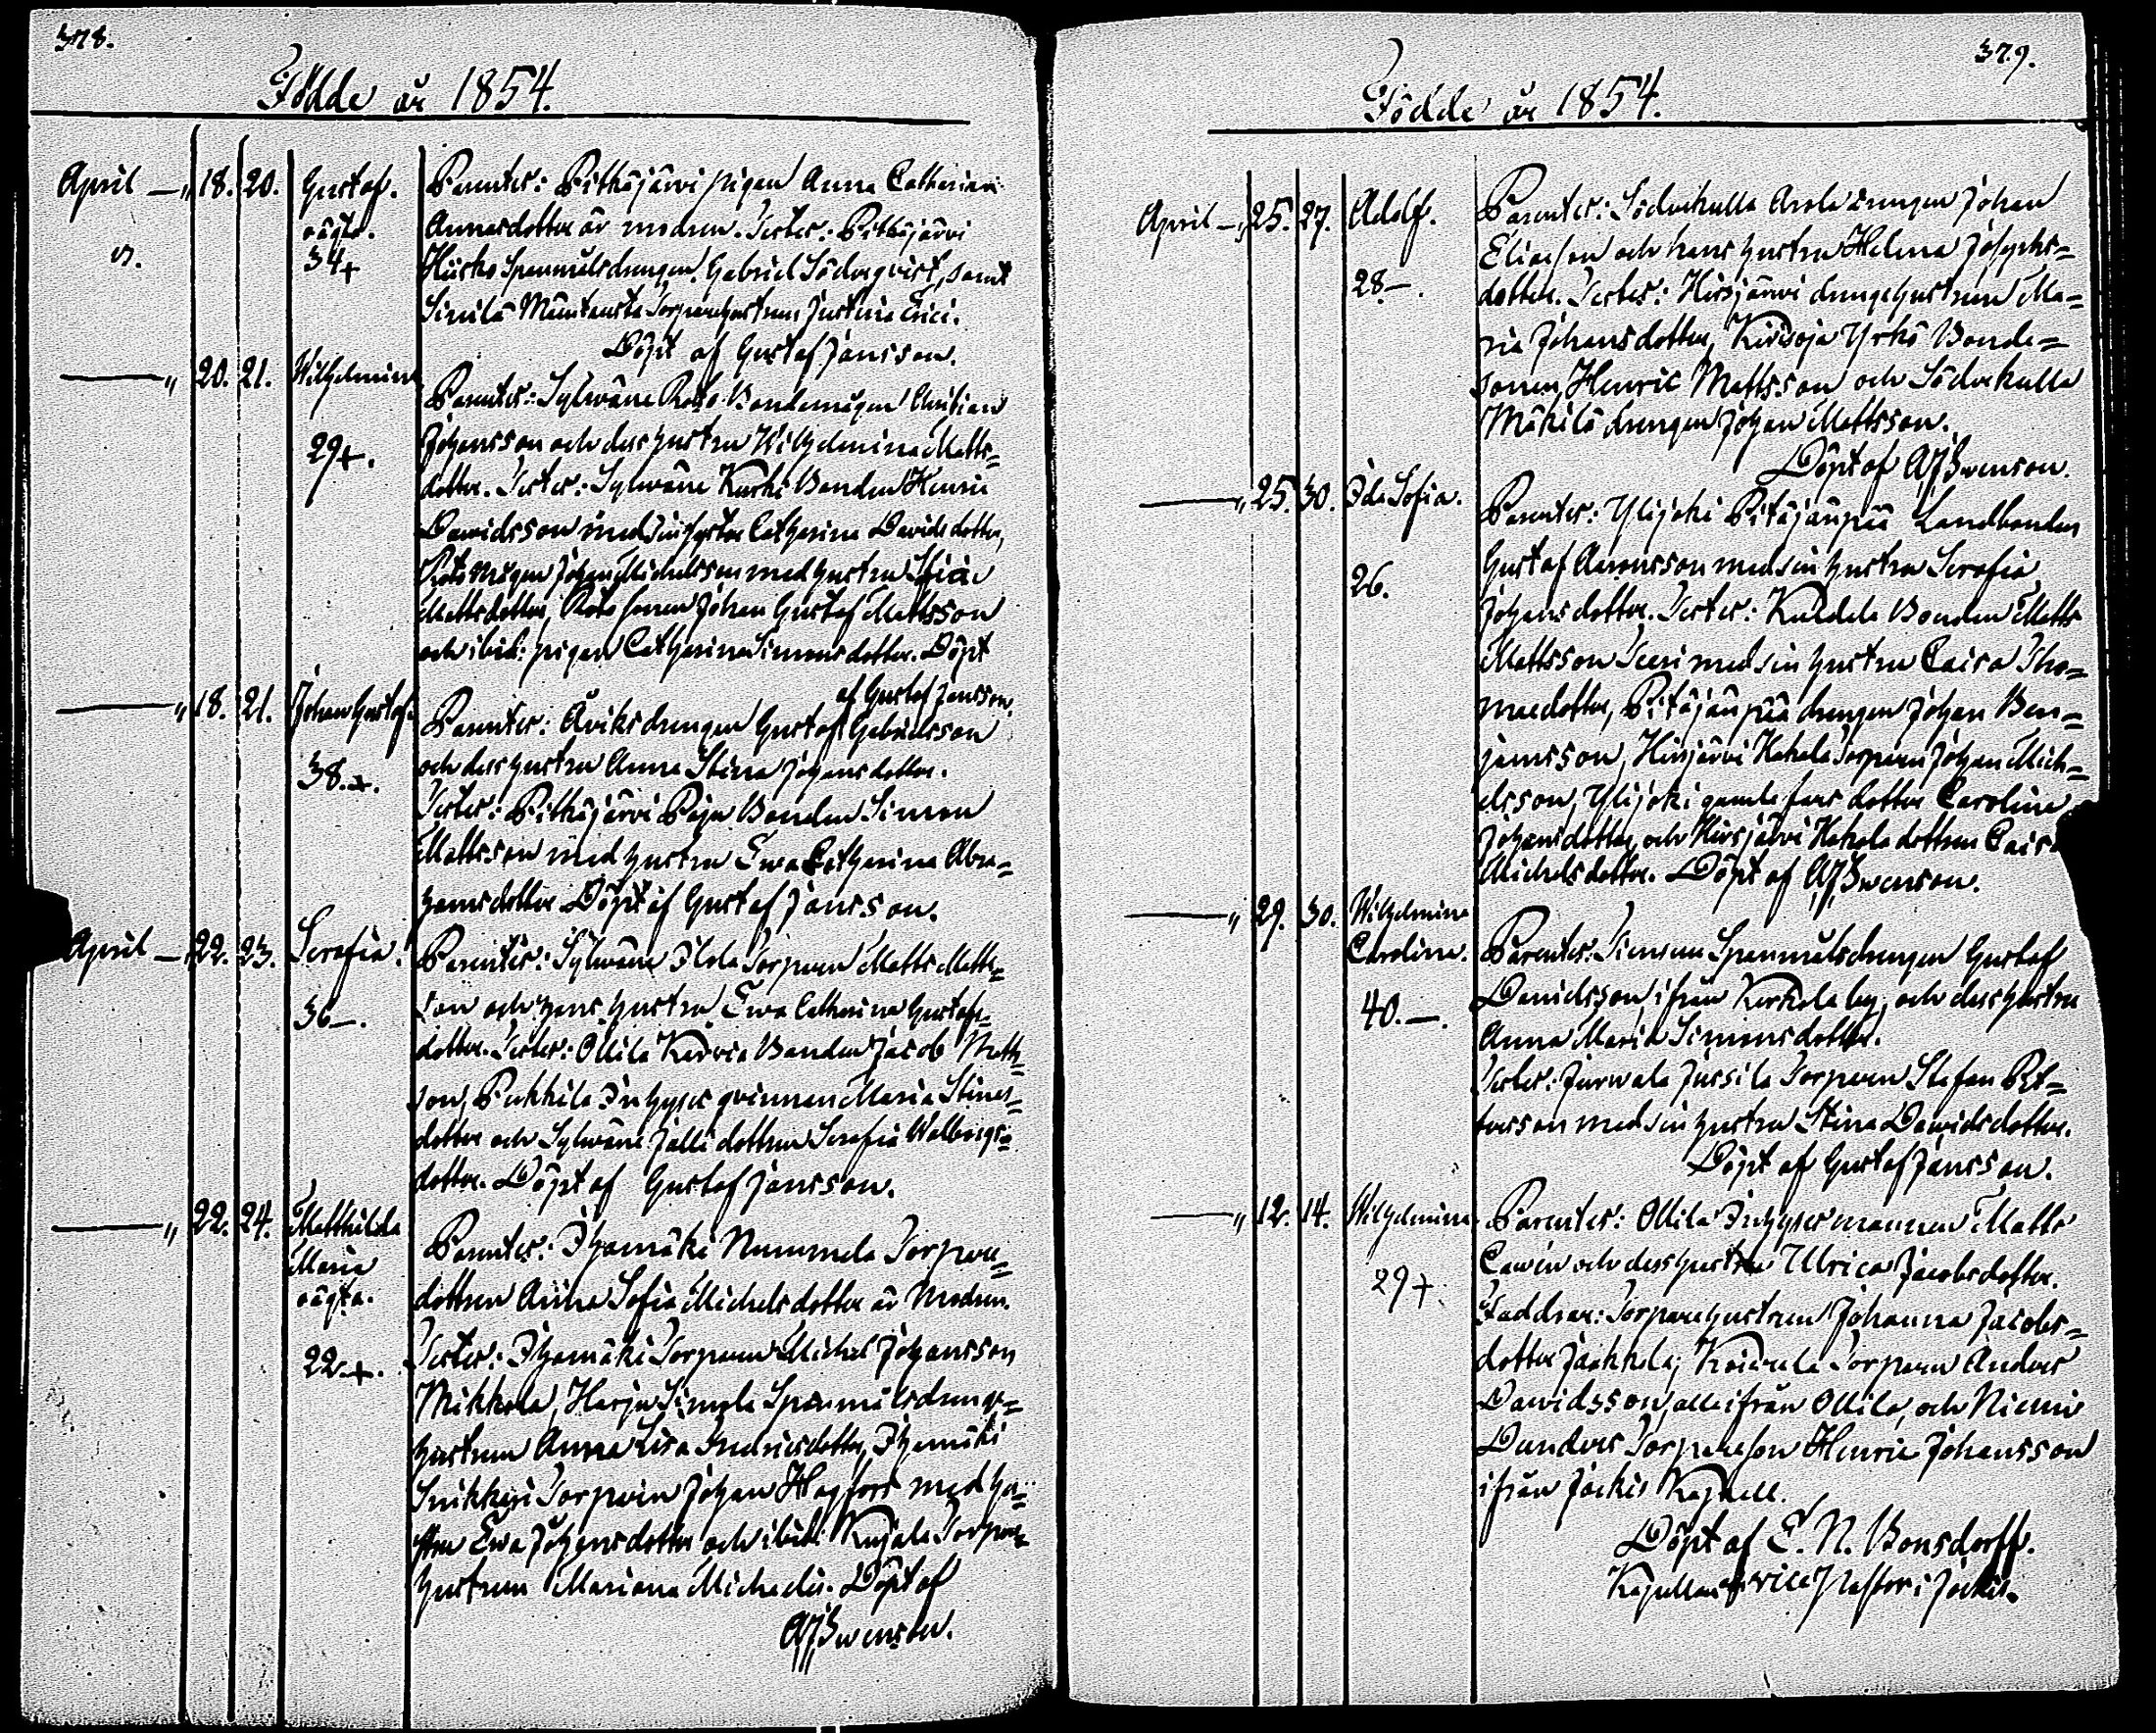 378.
Födde år 1854.
April —„ 18. 20. Gustaf. Parenter: Pitkäjärvi pigan Anna Catharina
oägta. Annasdotter är modren. Testes: Pitkäjärvi
34+ Hiisko Spanmålsdrengen Gabriel Söderqvist, samt
Simila Torparehustrun Justina Erici.
Döpt af Gustaf Jansson.
—„ 20. 21. Wilhelmina Parenter: Sylwäne Roto Bondemågen Christian
29+. Johansson och dess hustru Wilhelmina Matts=
dotter. Testes: Sylwäne Kurki Bonden Henric
Dawidsson med sin hustru Catharina Davidsdotter,
Roto mågen Johan Michelsson med hustru
Mattsdotter, Roto sonen Johan Gustaf Mattsson
och ibid: pigan Catharina Simonsdotter. Döpt
af Gustaf Jansson.
—„ 18. 21. Johan Gustaf. Parenter: Åviks drengen Gustaf Gabrielsson
38.+. och dess hustru Anna Stina Johansdotter.
Testes: Pitkäjärvi Bonden Simon
Mattsson med hustru Ewa Catharina Abra=
hamsdotter Döpt af Gustaf Jansson.
April — 22. 23. Serafia. Parenter: Sylwäne Torparen Matts Matts=
36—. son och hans hustru Ewa Catharina Gustafs=
dotter. Testes: Ollila Bonden Jacob Matts=
son, Inhyses qvinnan Maria Stinas=
dotter och Sylwäne Jalli dottren Serafia Walborgs=
dotter. Döpt af Gustaf Jansson.
—„ 22. 24. Matthilda Parenter: Ihamäki Nummela Torpare=
Maria dottren Anna Sofia Michelsdotter är Modren.
oägta. Testes: Ihamäki Torparen Michel Johansson
22.+. Mikkola, Harju Simola Spanmålsdrengs=
hustrun Anna Lisa Indricsdotter, Ihamäki
Torparen Johan Hagfors med hu=
stru Ewa Johansdotter och ibid: Kujala Torpare=
hustrun Mariana Michaelis. Döpt af
AJSwenson.
379.
Födde år 1854.
April —„ 25. 27. Adolf. Parenter: Söderkulla Arola drengen Johan
28.—. Eliasson och hans hustru Helena Josephs=
dotter. Testes: Hirsjärvi drengehustrun Ma=
ria Johansdotter, Yrkö Bonde=
sonen, Henric Mattsson och Söderkulla
Mäkilä drengen Johan Mattsson.
Döpt af AJSwenson.
—„ 25. 30. Ida Sofia. Parenter: Ylijoki Pitäjänpää Landbonden
26. Gustaf Aaronsson med sin hustru Serafia
Johansdotter. Testes: Bonden Matts
Mattsson med sin hustru Caisa Tho=
maedotter, Pitäjänpää drengen Johan Ben=
jamsson, Hirsjärvi Hakala Torparen Johan Mich=
elsson, Ylijoki dotter Carolina
Johansdotter, och Hirsjärvi Hakala dottren Caisa
Michelsdotter. Döpt af AJSwenson.
—„ 29. 30. Wilhelmina
Carolina. Parenter: Spanmålsdrengen Gustaf
40.—. Davidsson, ifrån Kerkola by, och dess hustru
Anna Maria Simonsdotter.
Testes: Jursila Torparen Stefan Pet=
tersson med sin hustru Stina Dawidsdotter.
Döpt af Gustaf Jansson.
—„ 12. 14. Wilhelmina. Parenter: Ollila Inhyses mannen Matts
29+. och dess hustru Ulrica Jacobsdotter.
Faddrar: Torparehustrun Johanna Jacobs=
dotter Torparen Anders
Dawidsson, alla ifrån Ollila, och Niemi
Torparesson Henric Johansson
ifrån Jockis Kapell.
Döpt af E. N. Bonsdorff.
Kapellan o. vice Pastor i Jockis.